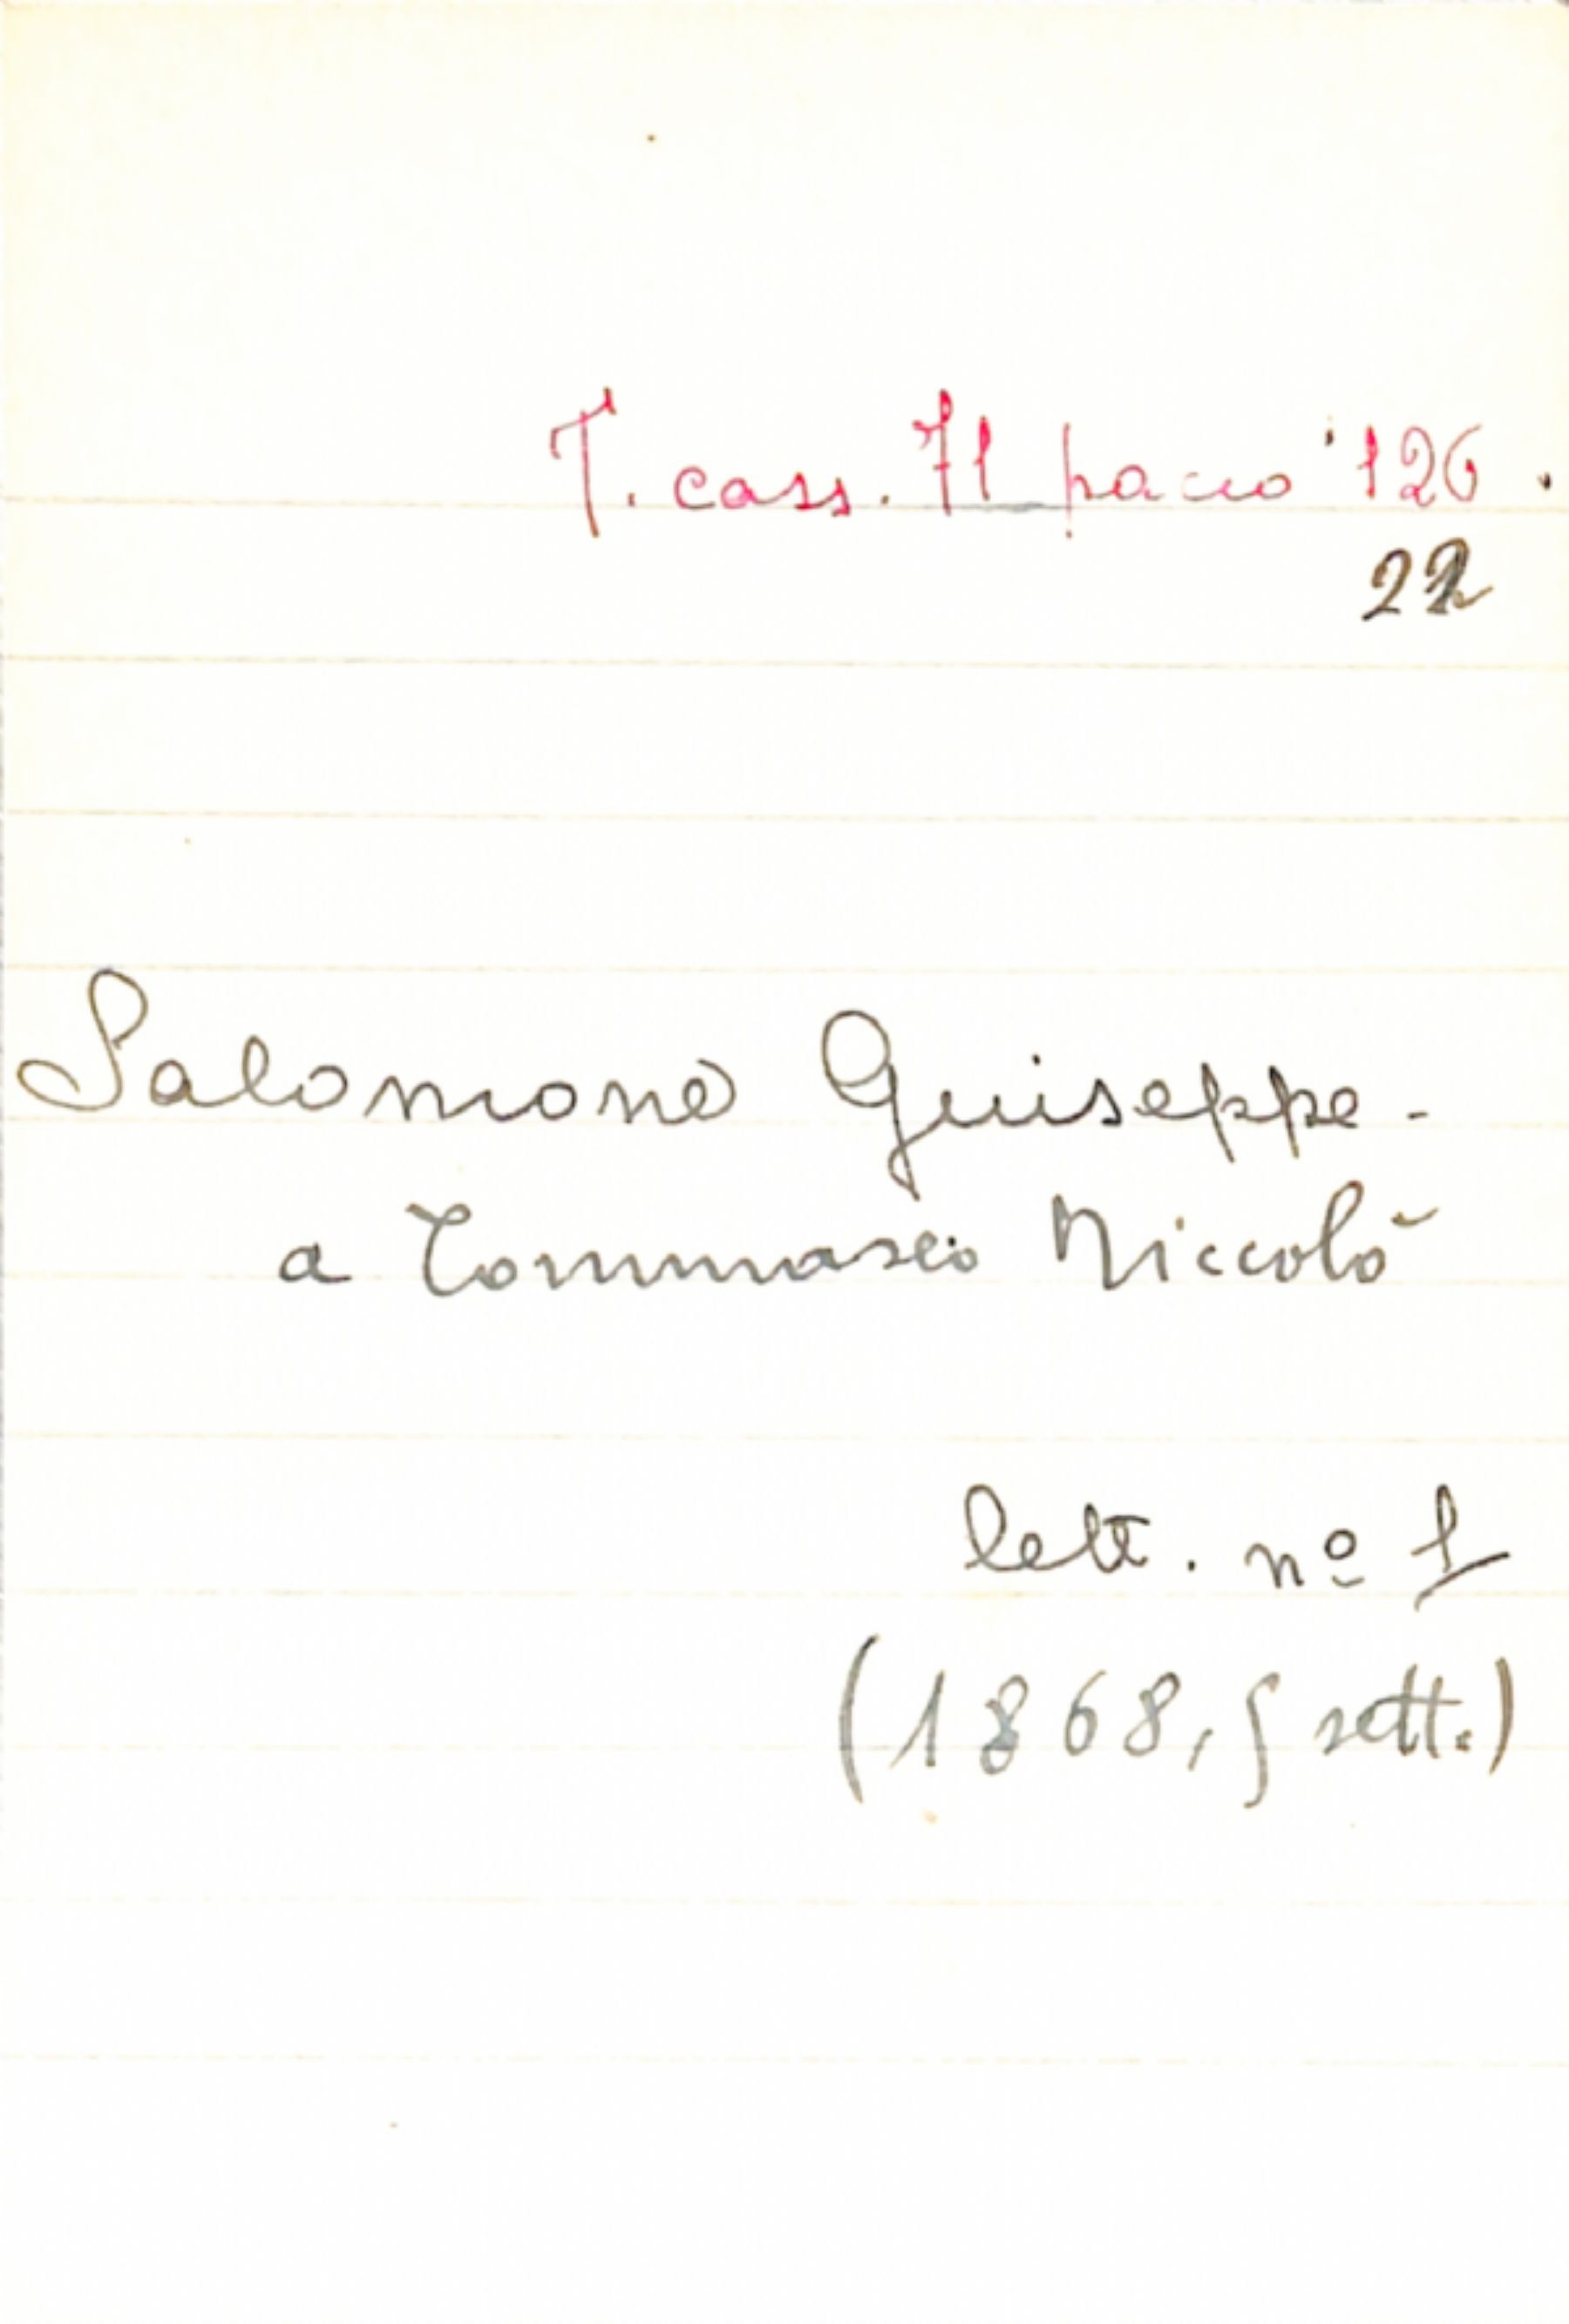 T. cass. 71 pacco 126.
22
Salomone Giuseppe -
a Tommaseo Niccolò
lett. nº 1
(1868, 5 sett.)